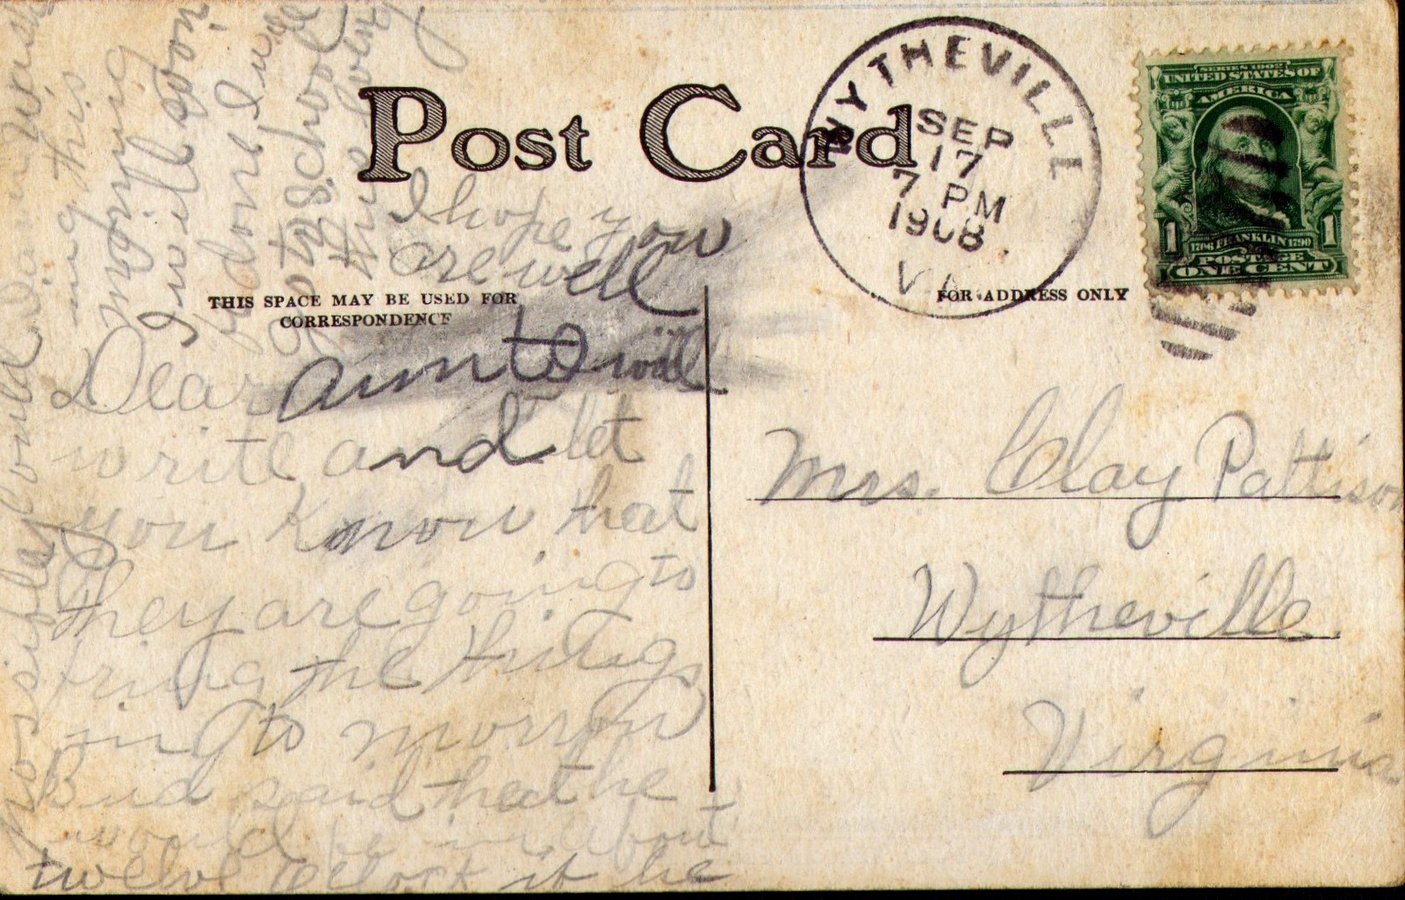 Post Card
WYTHEVILLE
SEP
17
7 PM
1908
VA.
SERIES 1902
UNITED STATES OF
AMERICA
1706 FRANKLIN 1790
1 1
POSTAGE
ONE CENT
THIS SPACE MAY BE USED FOR
CORRESPONDENCE
FOR ADDRESS ONLY
Mrs. Clay Pattison
Wytheville
Virginia
Dear aunte will
write and let
you know that
they are going to
bring the things
in to morrow
Bud said that he
would be in about
twelve oclock if he
possiblay could
this
morning
I will soon
be done I will
go to school
this
I hope you
are well